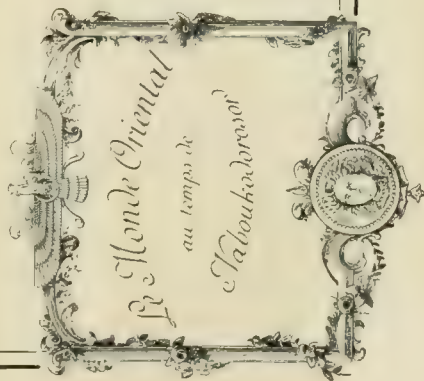 Le Monde Oriental
au temps de
Naboukodorosor